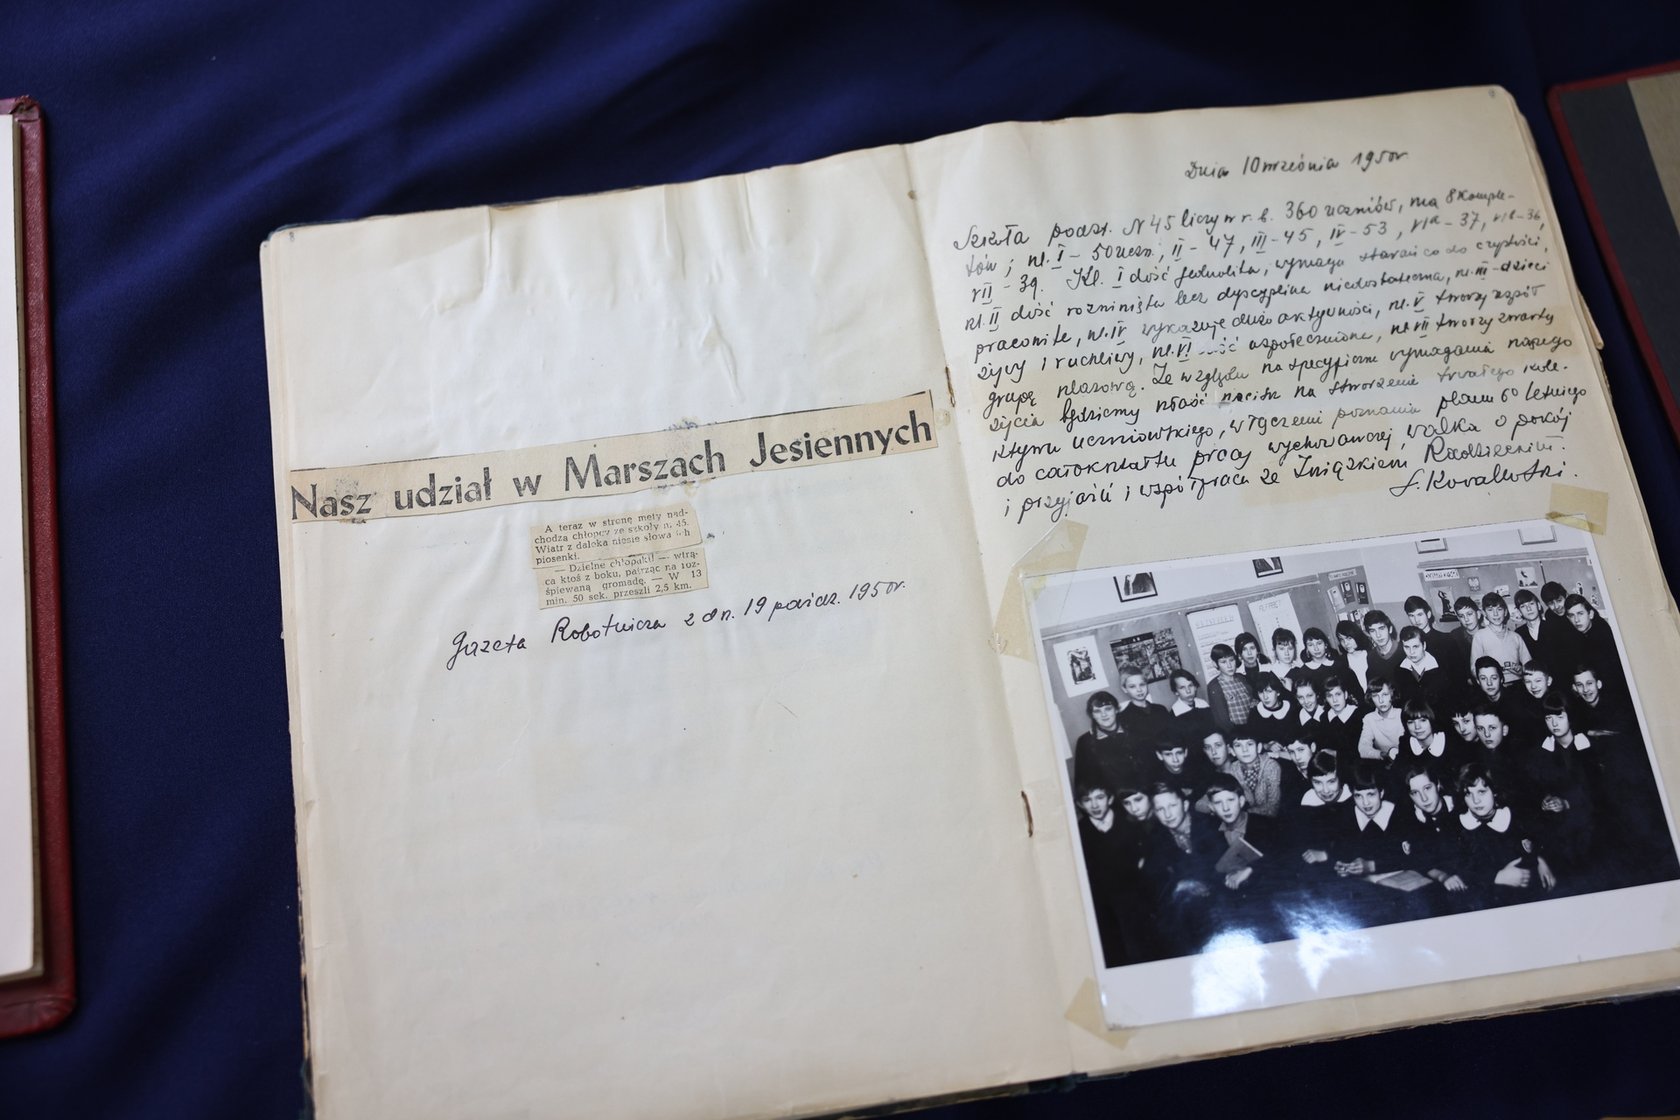 8
Nasz udział w Marszach Jesiennych
A teraz w stronę mety nad-
chodzą chłopcy ze szkoły n. 45.
Wiatr z daleka niesie słowa ich
piosenki.
— Dzielne chłopaki! — wtrą-
ca ktoś z boku, patrząc na roz-
śpiewaną gromadę. — W 13
min. 50 sek. przeszli 2,5 km.
Gazeta Robotnicza z dn. 19 paźdz. 1950r.
9
Dnia 10 września 1950r.
Szkoła podst. N 45 liczy w r. b. 360 uczniów, ma 8 komple-
tów; kl. I – 50 uczn., II – 47, III – 45, IV – 53, VIa – 37, VIb – 36,
VII – 39. Kl. I dość jednolita, wymaga starań co do czystości,
kl. II dość rozwinięta lecz dyscyplina niedostateczna, kl. III – dzieci
pracowite, kl. IV wykazuje dużo aktywności, kl. V tworzy zespół
żywy i ruchliwy, kl. VI dość uspołeczniona, kl. VII tworzy zwartą
grupę klasową. Ze względu na specyficzne wymagania naszego
życia będziemy kłaść nacisk na stworzenie trwałego kole-
ktywu uczniowskiego, włączeni poznania planu 6 letniego
do całokształtu pracy wychowawczej, walka o pokój
i przyjaźń i współpraca ze Związkiem Radzieckim.
S. Kowalewski.
ALFABET